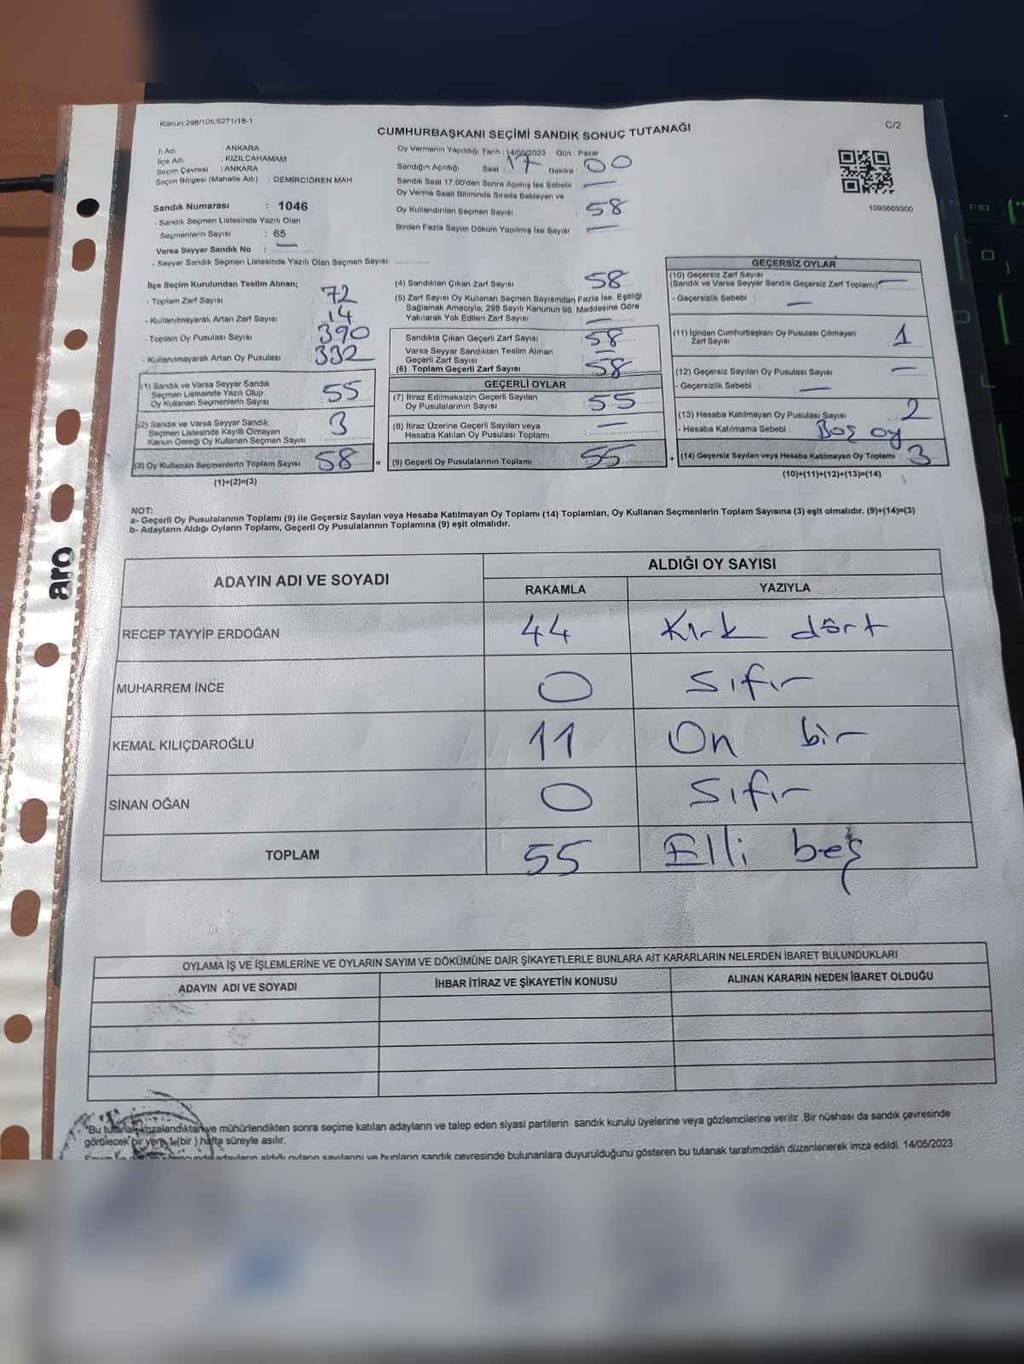 Kanun:298/105;6271/18-1
CUMHURBAŞKANI SEÇİMİ SANDIK SONUÇ TUTANAĞI
C/2
İl Adı : ANKARA
İlçe Adı : KIZILCAHAMAM
Seçim Çevresi : ANKARA
Seçim Bölgesi (Mahalle Adı) : DEMİRCİÖREN MAH.
Sandık Numarası : 1046
- Sandık Seçmen Listesinde Yazılı Olan
Seçmenlerin Sayısı : 65
Varsa Seyyar Sandık No : —
- Seyyar Sandık Seçmen Listesinde Yazılı Olan Seçmen Sayısı
Oy Vermenin Yapıldığı Tarih : 14/05/2023 Gün : Pazar
Sandığın Açıldığı Saat 17 Dakika 00
Sandık Saat 17:00'den Sonra Açılmış İse Sebebi : —
Oy Verme Saati Bitiminde Sırada Bekleyen ve
Oy Kullandırılan Seçmen Sayısı 58
Birden Fazla Sayım Döküm Yapılmış İse Sayısı —
1093669300
İlçe Seçim Kurulundan Teslim Alınan;
- Toplam Zarf Sayısı 72
- Kullanılmayarak Artan Zarf Sayısı 14
- Toplam Oy Pusulası Sayısı 390
- Kullanılmayarak Artan Oy Pusulası 332
(1) Sandık ve Varsa Seyyar Sandık
Seçmen Listesinde Yazılı Olup
Oy Kullanan Seçmenlerin Sayısı 55
(2) Sandık ve Varsa Seyyar Sandık
Seçmen Listesinde Kayıtlı Olmayan
Kanun Gereği Oy Kullanan Seçmen Sayısı 3
(3) Oy Kullanan Seçmenlerin Toplam Sayısı 58
(1)+(2)=(3)
(4) Sandıktan Çıkan Zarf Sayısı 58
(5) Zarf Sayısı Oy Kullanan Seçmen Sayısından Fazla İse, Eşitliği
Sağlamak Amacıyla; 298 Sayılı Kanunun 98. Maddesine Göre
Yakılarak Yok Edilen Zarf Sayısı —
Sandıkta Çıkan Geçerli Zarf Sayısı 58
Varsa Seyyar Sandıktan Teslim Alınan
Geçerli Zarf Sayısı —
(6) Toplam Geçerli Zarf Sayısı 58
GEÇERLİ OYLAR
(7) İtiraz Edilmeksizin Geçerli Sayılan
Oy Pusulalarının Sayısı 55
(8) İtiraz Üzerine Geçerli Sayılan veya
Hesaba Katılan Oy Pusulası Toplamı —
= (9) Geçerli Oy Pusulalarının Toplamı 55
GEÇERSİZ OYLAR
(10) Geçersiz Zarf Sayısı
(Sandık ve Varsa Seyyar Sandık Geçersiz Zarf Toplamı) —
- Geçersizlik Sebebi : —
(11) İçinden Cumhurbaşkanı Oy Pusulası Çıkmayan
Zarf Sayısı 1
(12) Geçersiz Sayılan Oy Pusulası Sayısı —
- Geçersizlik Sebebi : —
(13) Hesaba Katılmayan Oy Pusulası Sayısı 2
- Hesaba Katılmama Sebebi : Boş oy
+ (14) Geçersiz Sayılan veya Hesaba Katılmayan Oy Toplamı 3
(10)+(11)+(12)+(13)=(14)
NOT:
a- Geçerli Oy Pusulalarının Toplamı (9) ile Geçersiz Sayılan veya Hesaba Katılmayan Oy Toplamı (14) Toplamları, Oy Kullanan Seçmenlerin Toplam Sayısına (3) eşit olmalıdır. (9)+(14)=(3)
b- Adayların Aldığı Oyların Toplamı, Geçerli Oy Pusulalarının Toplamına (9) eşit olmalıdır.
aro
ADAYIN ADI VE SOYADI ALDIĞI OY SAYISI
RAKAMLA YAZIYLA
RECEP TAYYİP ERDOĞAN 44 Kırk dört
MUHARREM İNCE 0 Sıfır
KEMAL KILIÇDAROĞLU 11 On bir
SİNAN OĞAN 0 Sıfır
TOPLAM 55 Elli beş
OYLAMA İŞ VE İŞLEMLERİNE VE OYLARIN SAYIM VE DÖKÜMÜNE DAİR ŞİKAYETLERLE BUNLARA AİT KARARLARIN NELERDEN İBARET BULUNDUKLARI
ADAYIN ADI VE SOYADI İHBAR İTİRAZ VE ŞİKAYETİN KONUSU ALINAN KARARIN NEDEN İBARET OLDUĞU
"Bu tutanak imzalandıktan ve mühürlendikten sonra seçime katılan adayların ve talep eden siyasi partilerin sandık kurulu üyelerine veya gözlemcilerine verilir. Bir nüshası da sandık çevresinde
görülecek bir yere 1 (bir) hafta süreyle asılır.
adayların aldığı oyların sayılarını ve bunların sandık çevresinde bulunanlara duyurulduğunu gösteren bu tutanak tarafımızdan düzenlenerek imza edildi. 14/05/2023